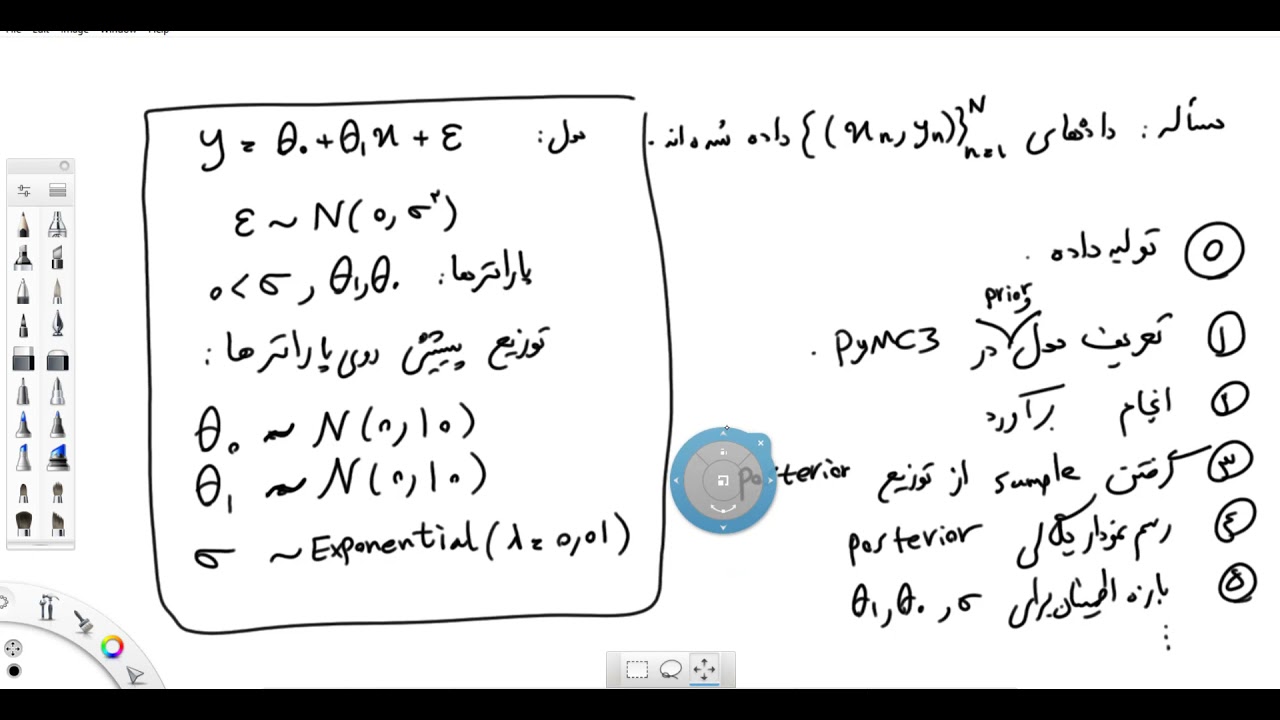 File Edit Image Window Help
مسأله: داده‌های {(xn, yn)}_{n=1}^{N} داده شده‌اند.
مدل: y = θ₀ + θ₁x + ε
ε ~ N(0, σ²)
پارامترها: θ₁, θ₀, 0 < σ
توزیع پیشین روی پارامترها:
θ₀ ~ N(0, 10)
θ₁ ~ N(0, 10)
σ ~ Exponential(λ = 0,01)
0 تولید داده.
prior
۱ تعریف مدل در PyMC3.
۲ انجام برآورد
۳ گرفتن sample از توزیع posterior
۴ رسم نمودار چگالی posterior
۵ بازه اطمینان برای θ₁, θ₀, σ
⋮